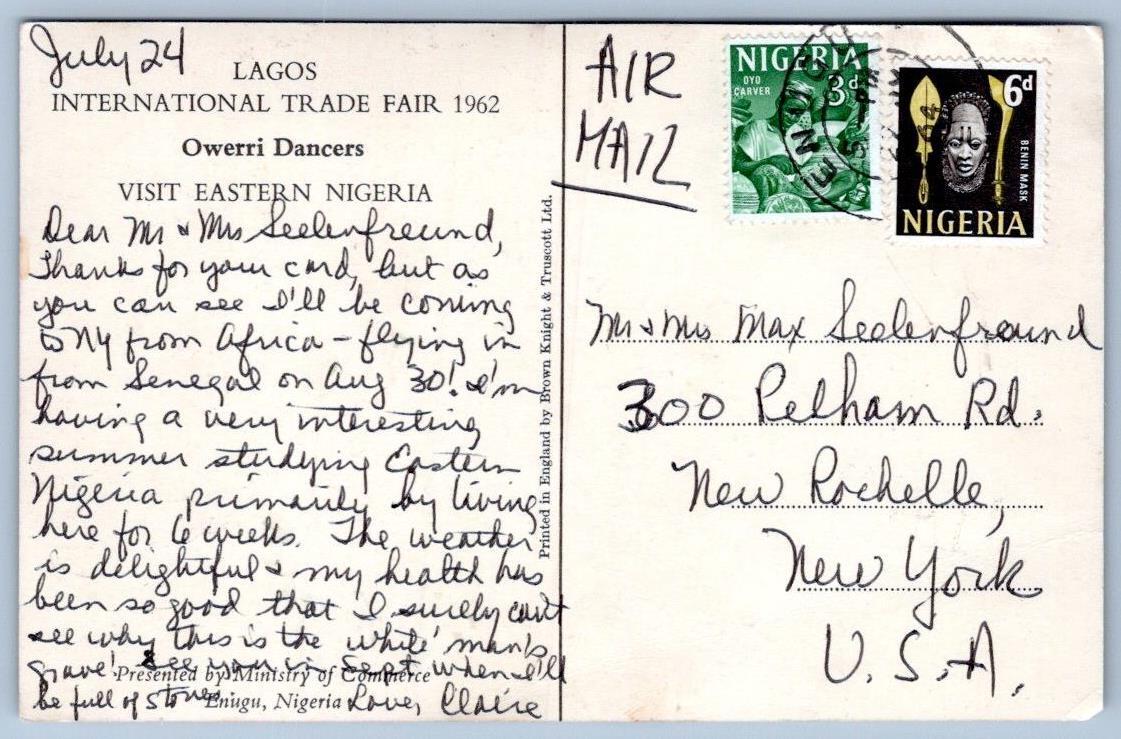 July 24
LAGOS
INTERNATIONAL TRADE FAIR 1962
Owerri Dancers
VISIT EASTERN NIGERIA
Dear Mr & Mrs Seelenfreund,
Thanks for your card, but as
you can see I'll be coming
to NY from Africa – flying in
from Senegal on Aug 30! I'm
having a very interesting
summer studying Eastern
Nigeria primarily by living
here for 6 weeks. The weather
is delightful & my health has
been so good that I surely can't
see why this is the 'white' man's
grave! See you in Sept when I'll
be full of stories. Love, Claire
Presented by Ministry of Commerce
Enugu, Nigeria
Printed in England by Brown Knight & Truscott Ltd.
AIR
MAIL
NIGERIA
OYO
CARVER
3d
6d
BENIN MASK
NIGERIA
Mr & Mrs Max Seelenfreund
300 Pelham Rd.
New Rochelle,
New York
U.S.A.